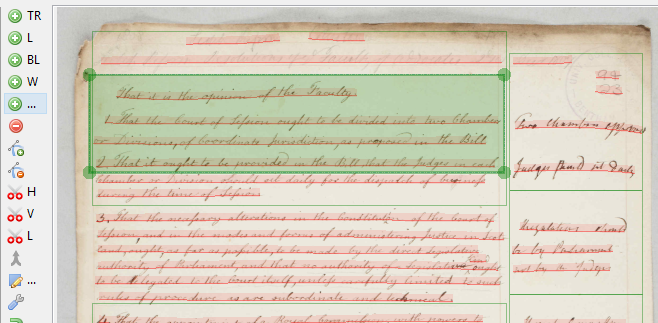 TR
L
BL
W
...
H
V
L
...
That it is the opinion of the Faculty
1. That the Court of Session ought to be divided into two Chambers
or Divisions, of Coordinate Jurisdiction, as proposed in the Bill
2. That it ought to be provided in the Bill that the Judges in each
Chamber or Division should sit daily for the dispatch of business
during the time of Session.
3. That the necessary alterations in the Constitution of the Court of
Session, and in the and forms of administering Justice in
ought, as far as possible, to be made by the direct Legislative
authority of Parliament, and that no authority ought
to be delegated to the Court itself, unless carefully limited to such
rules of procedure as are subordinate and technical.
4. That the of a Royal Commission with powers to
Two Chambers approved
Judges should sit daily
Regulations should
be by Parliament
not by a Judge